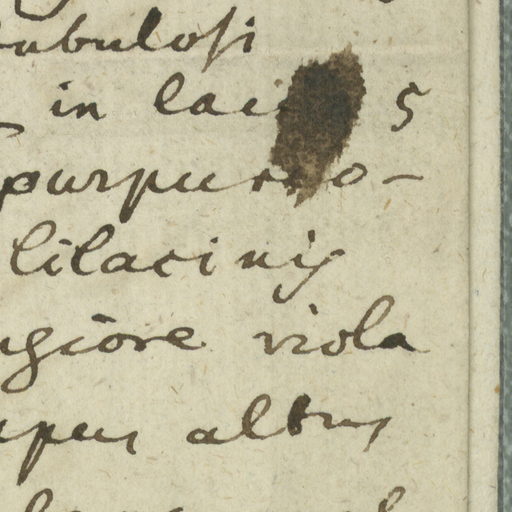 tubulosi
in laci 5
purpureo-
lilacinis
giore viola
apus albus